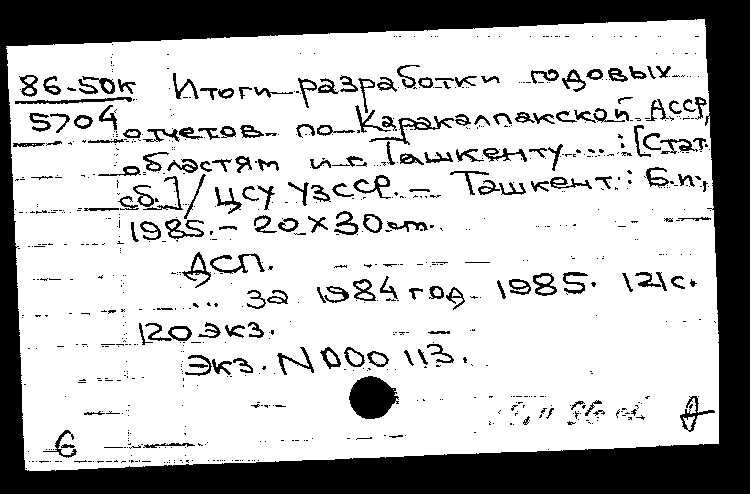 86-50к Итоги разработки годовых
5704 отчетов по Каракалпакской АССР,
областям и г. Ташкенту... : [Стат.
сб.] / ЦСУ УзССР. – Ташкент : Б.и.,
1985. – 20×30 см.
ДСП.
... за 1984 год. 1985. 121 с.
120 экз.
Экз. N 000113.
6